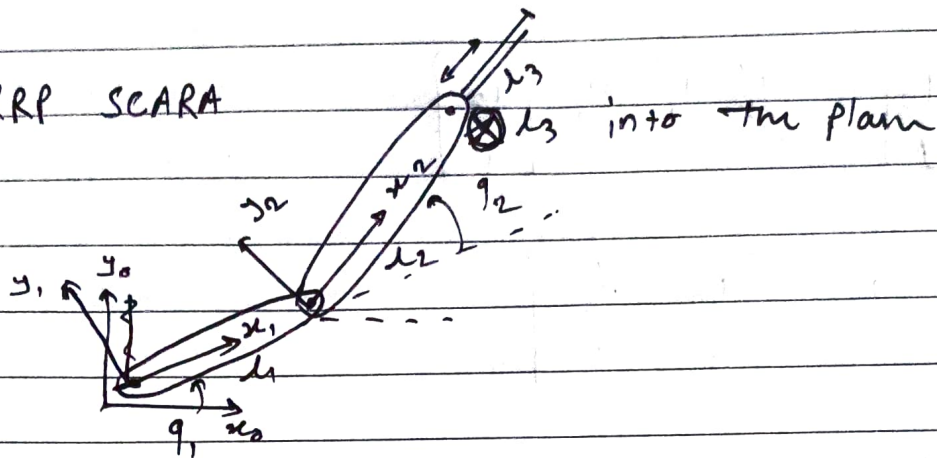 RRP SCARA
l3
l3 into the plam
y2
x2
q2
l2
y1
y0
x1
l1
q1
x0